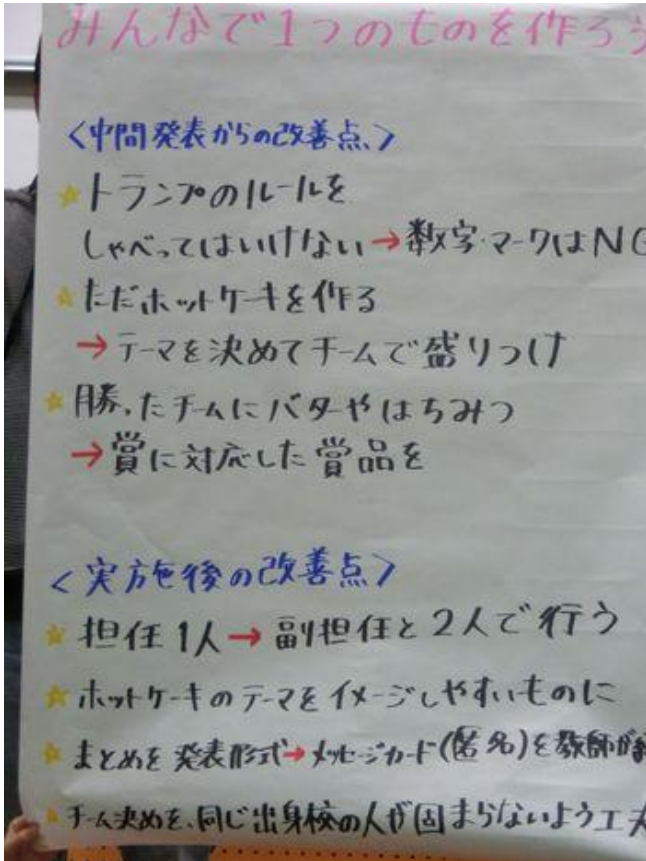 みんなで1つのものを作ろう
<中間発表からの改善点>
☆トランプのルールを
しゃべってはいけない→数字・マークはNG
☆ただホットケーキを作る
→テーマを決めてチームで盛りつけ
☆勝ったチームにバターやはちみつ
→賞に対応した賞品を
<実施後の改善点>
☆担任1人→副担任と2人で行う
☆ホットケーキのテーマをイメージしやすいものに
☆まとめを発表形式→メッセージカード(匿名)を教師が
☆チーム決めを、同じ出身校の人が固まらないよう工夫